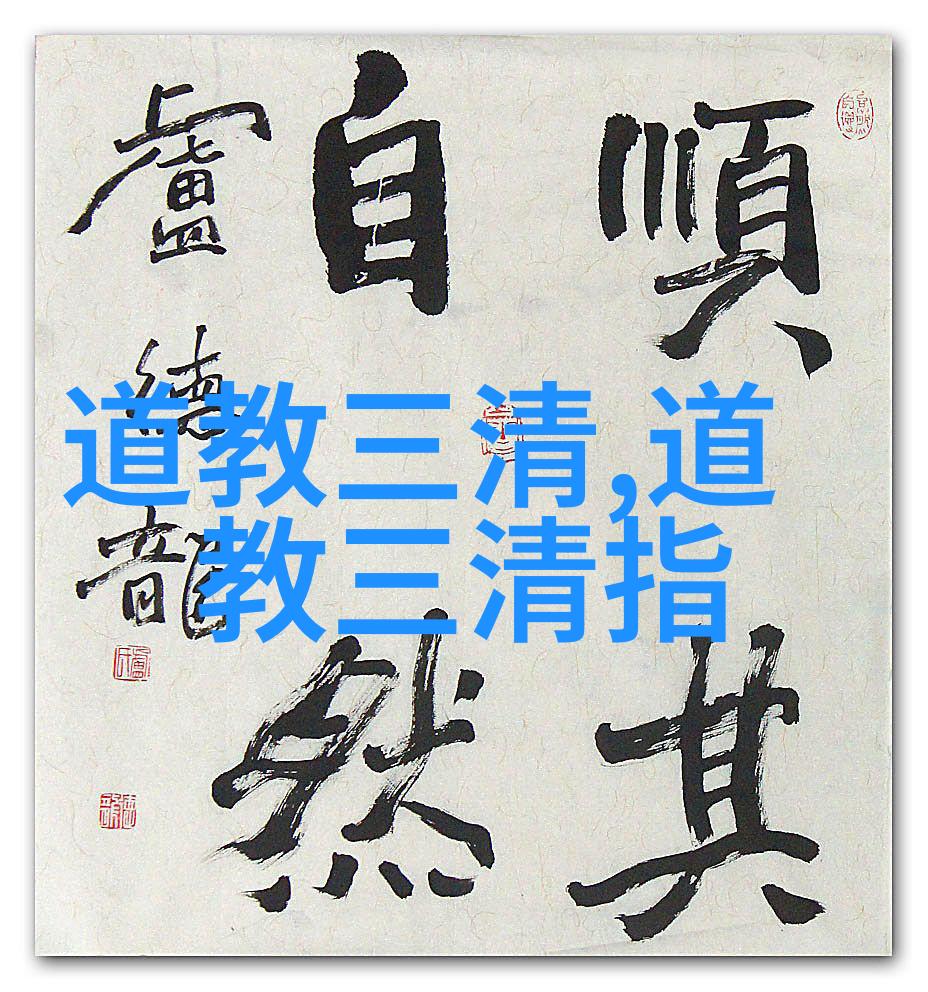 順其
自然
盧德龍
道教三清,道
教三清指